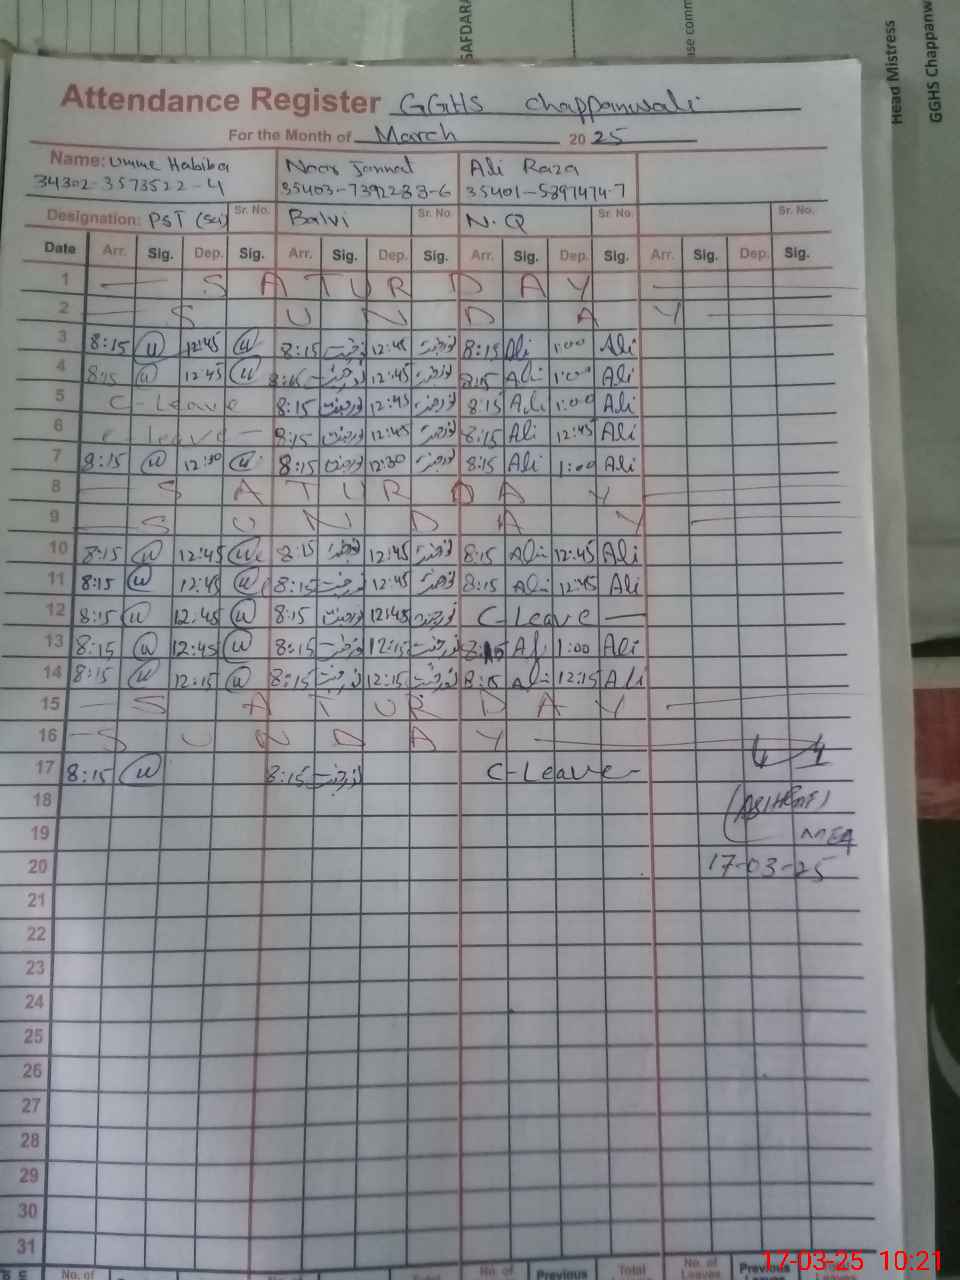 SAFDARA
ase comm
Head Mistress
GGHS Chappanw
Attendance Register GGHS Chappanwali
For the Month of March 2025
Name: Umme Habiba Noor Jannat Ali Raza
34302-3573522-4 35403-7392288-6 35401-5897474-7
Designation: PST (Sci) Sr. No. Balvi Sr. No. N.Q Sr. No. Sr. No.
Date Arr. Sig. Dep. Sig. Arr. Sig. Dep. Sig. Arr. Sig. Dep. Sig. Arr. Sig. Dep. Sig.
1 — S A T U R D A Y —
2 — S U N D A Y —
3 8:15 u 12:45 u 8:15 نورجنت 12:45 نورجنت 8:15 Ali 1:00 Ali
4 8:15 u 12:45 u 8:15 نورجنت 12:45 نورجنت 8:15 Ali 1:00 Ali
5 C-Leave 8:15 نورجنت 12:45 نورجنت 8:15 Ali 1:00 Ali
6 C-Leave — 8:15 نورجنت 12:45 نورجنت 8:15 Ali 12:45 Ali
7 8:15 u 12:30 u 8:15 نورجنت 12:30 نورجنت 8:15 Ali 1:00 Ali
8 — S A T U R D A Y —
9 — S U N D A Y —
10 8:15 u 12:45 u 8:15 نورجنت 12:45 نورجنت 8:15 Ali 12:45 Ali
11 8:15 u 12:45 u 8:15 نورجنت 12:45 نورجنت 8:15 Ali 12:45 Ali
12 8:15 u 12:45 u 8:15 نورجنت 12:45 نورجنت C-Leave —
13 8:15 u 12:45 u 8:15 نورجنت 12:15 نورجنت 8:15 Ali 1:00 Ali
14 8:15 u 12:15 u 8:15 نورجنت 12:15 نورجنت 8:15 Ali 12:15 Ali
15 — S A T U R D A Y —
16 — S U N D A Y —
17 8:15 u 8:15 نورجنت C-Leave —
18
19 MEA
20 17-03-25
21
22
23
24
25
26
27
28
29
30
31
No. of No. of Previous Total No. of Leaves Previous
17-03-25 10:21